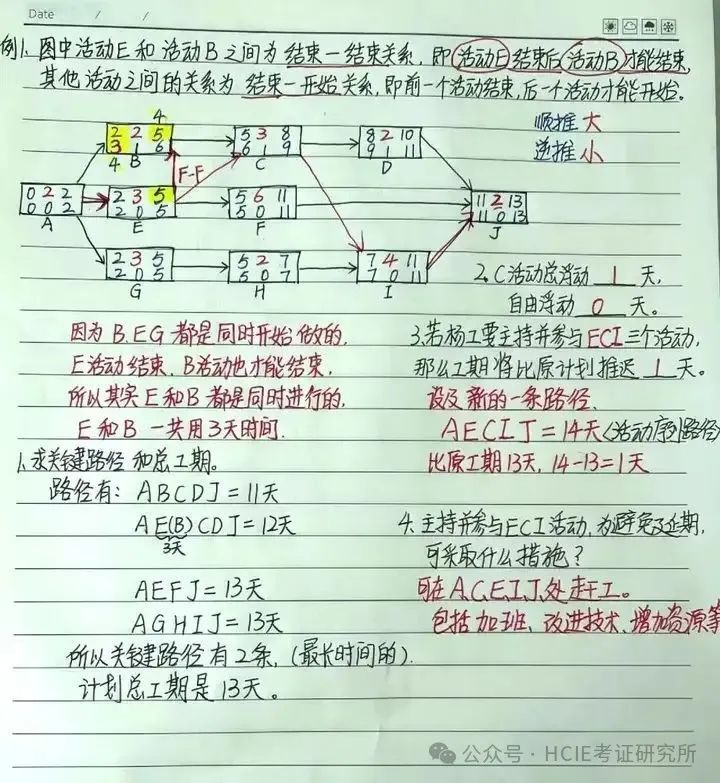 Date / /
例1. 图中活动E和活动B之间为结束—结束关系,即活动E结束后活动B才能结束,
其他活动之间的关系为 结束—开始关系,即前一个活动结束,后一个活动才能开始。
顺推大
逆推小
4
2 2 5
3 1 6
4 B
5 3 8
6 1 9
C
8 2 10
9 1 11
D
F-F
0 2 2
0 0 2
A
2 3 5
2 0 5
E
5 6 11
5 0 11
F
11 2 13
11 0 13
J
2 3 5
2 0 5
G
5 2 7
5 0 7
H
7 4 11
7 0 11
I
2. C活动总浮动 1 天,
自由浮动 0 天。
因为B.EG都是同时开始做的,
E活动结束,B活动也才能结束,
所以其实E和B都是同时进行的,
E和B一共用3天时间.
1. 求关键路径和总工期。
路径有: ABCDJ=11天
AE(B)CDJ=12天
3天
AEFJ=13天
AGHIJ=13天
所以关键路径有2条,(最长时间的).
计划总工期是13天。
3.若杨工要主持并参与ECI三个活动,
那么工期将比原计划推迟 1 天。
设及新的一条路径,
AECIJ=14天(活动序列路径)
比原工期13天, 14-13=1天
4. 主持并参与ECI活动,为避免延期,
可采取什么措施?
可在A,C,E,I,J,处赶工。
包括加班、改进技术、增加资源等
公众号·HCIE考证研究所